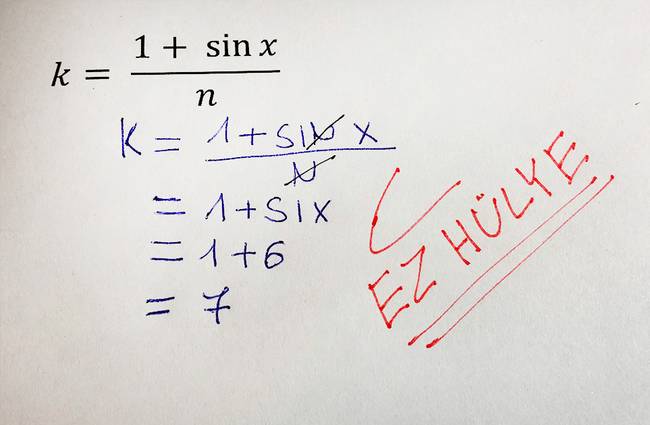 k = (1 + sin x) / n
K = (1 + SIN X) / N
= 1 + SIX
= 1 + 6
= 7
EZ HÜLYE